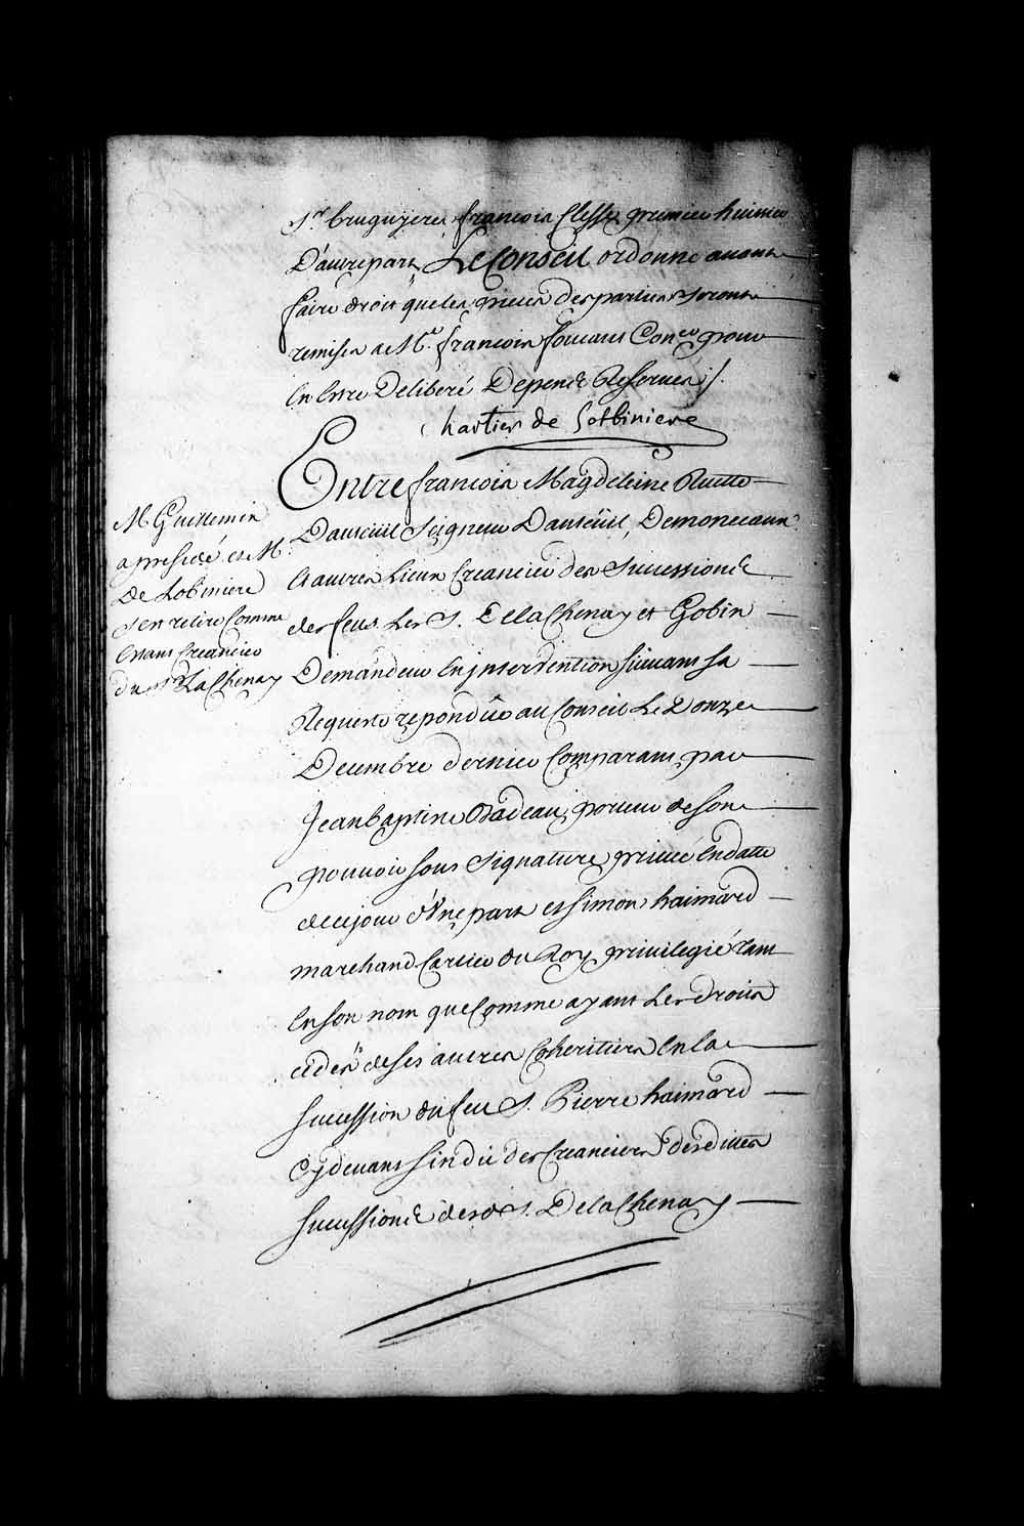 Sr. bruguyere francois Clesse premier huissier
D'autre part Le Conseil ordonne avant
faire droit que les pieces des parties seront
remises a Me. francois foucaut Coner. pour
En Estre Deliberé Depens Reservez /.
Chartier de Lotbiniere
Entre francois Magdeleine Ruette
Dauteüil Seigneur Dauteüil, Demonceaux
Et autres Lieux Creancier des Successions
des feus Les S. Delachenay et Gobin
Demandeur En jntervention suivant sa
Requeste repondüe au Conseil Le Donze
Decembre dernier Comparant par
Jean baptiste Badeau porteur de son
pouvoir sous signature privée En datte
de ce jour d'Vne part et Simon haimard
marchand Cartier du Roy privilegié tant
En son nom que Comme ayant Les droits
cedez de ses autres Coheritiers En la
succession du feu S. Pierre haimard
Cy devant sindic des Creanciers desdittes
successions desds. S. Delachenay
M Guillemin
a presidé et M
De Lotbiniere
s'en retiré Comme
Estant Creancier
du sr. LaChenay